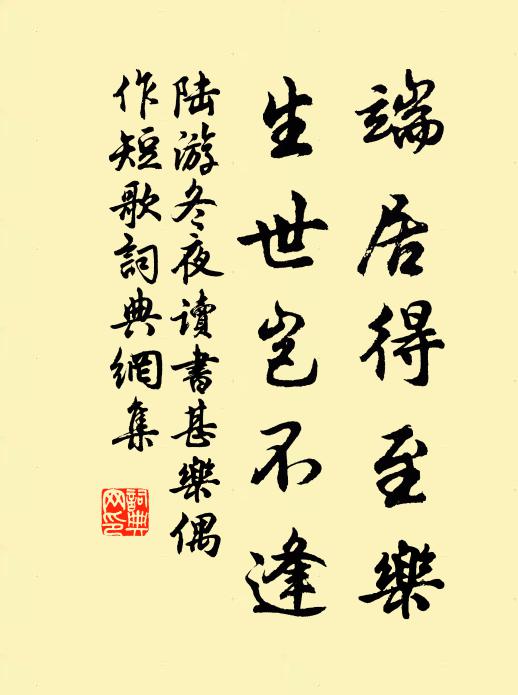 端居得至樂
生世岂不逢
陆游冬夜讀書甚樂偶
作短歌詞典網集
詞典
网印